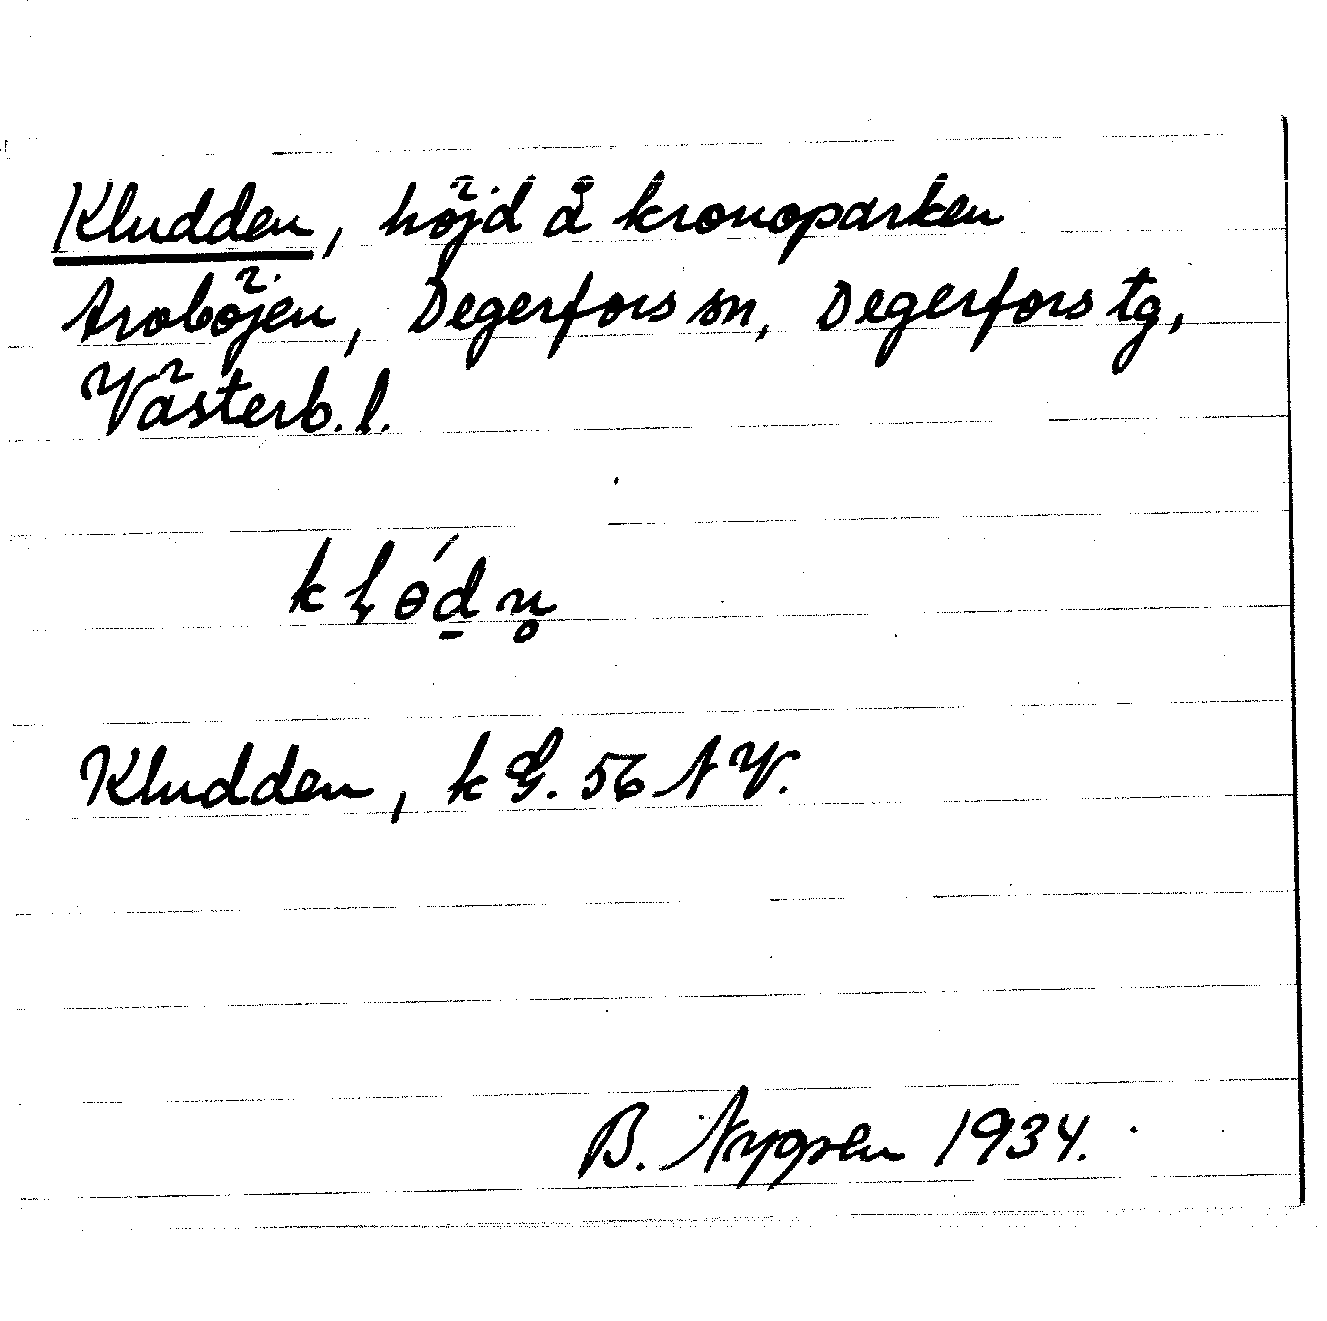 Kludden, höjd å kronoparken
Aroböjen, Degerfors sn, Degerfors tg,
Västerb. l.
Kludden, k G. 56 NV.
B. Nygren 1934.